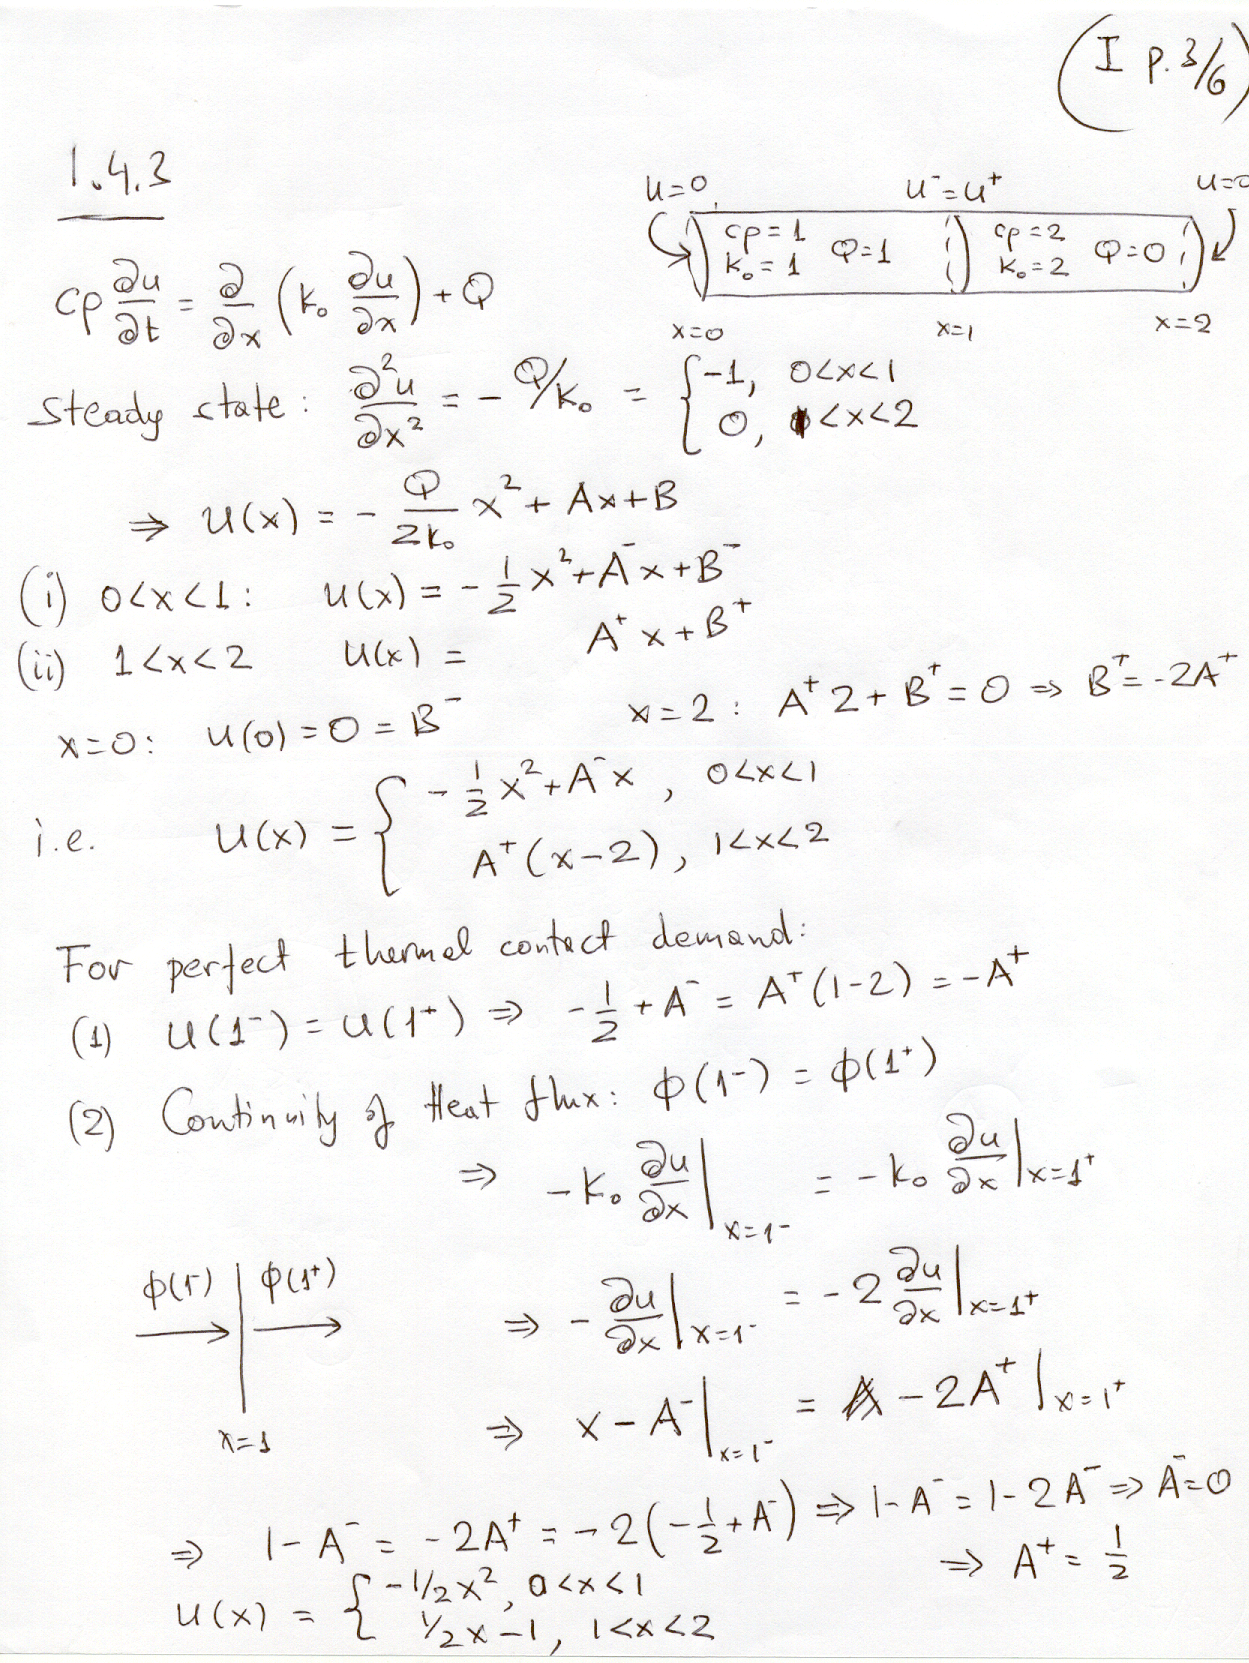 (I p.3/6)
1.4.3
u=0 u⁻=u⁺ u=0
cρ=1 Q=1 cρ=2 Q=0
k₀=1 k₀=2
x=0 x=1 x=2
cρ ∂u/∂t = ∂/∂x (k₀ ∂u/∂x) + Q
Steady state: ∂²u/∂x² = - Q/k₀ = { -1, 0<x<1
0, 1<x<2
⇒ u(x) = - Q/2k₀ x² + Ax+B
(i) 0<x<1: u(x) = - 1/2 x²+A⁻x+B⁻
(ii) 1<x<2 u(x) = A⁺x+B⁺
x=0: u(0)=0=B⁻ x=2: A⁺2+B⁺=0 ⇒ B⁺=-2A⁺
i.e. u(x) = { - 1/2 x²+A⁻x, 0<x<1
A⁺(x-2), 1<x<2
For perfect thermal contact demand:
(1) u(1⁻)=u(1⁺) ⇒ - 1/2 + A⁻ = A⁺(1-2) = -A⁺
(2) Continuity of Heat flux: ϕ(1⁻) = ϕ(1⁺)
⇒ -k₀ ∂u/∂x |x=1⁻ = -k₀ ∂u/∂x |x=1⁺
ϕ(1⁻) ϕ(1⁺)
x=1
⇒ - ∂u/∂x |x=1⁻ = -2 ∂u/∂x |x=1⁺
⇒ x-A⁻ |x=1⁻ = -2A⁺ |x=1⁺
⇒ 1-A⁻ = -2A⁺ = -2(-1/2+A⁻) ⇒ 1-A⁻ = 1-2A⁻ ⇒ A⁻=0
⇒ A⁺ = 1/2
u(x) = { -1/2x², 0<x<1
1/2x-1, 1<x<2